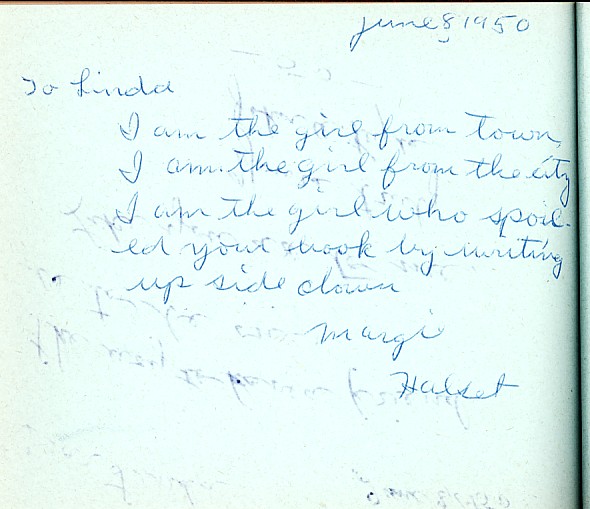 June 8 1950
To Linda
I am the girl from town,
I am the girl from the city
I am the girl who spoil-
ed your book by writing
up side down
Margie
Halset